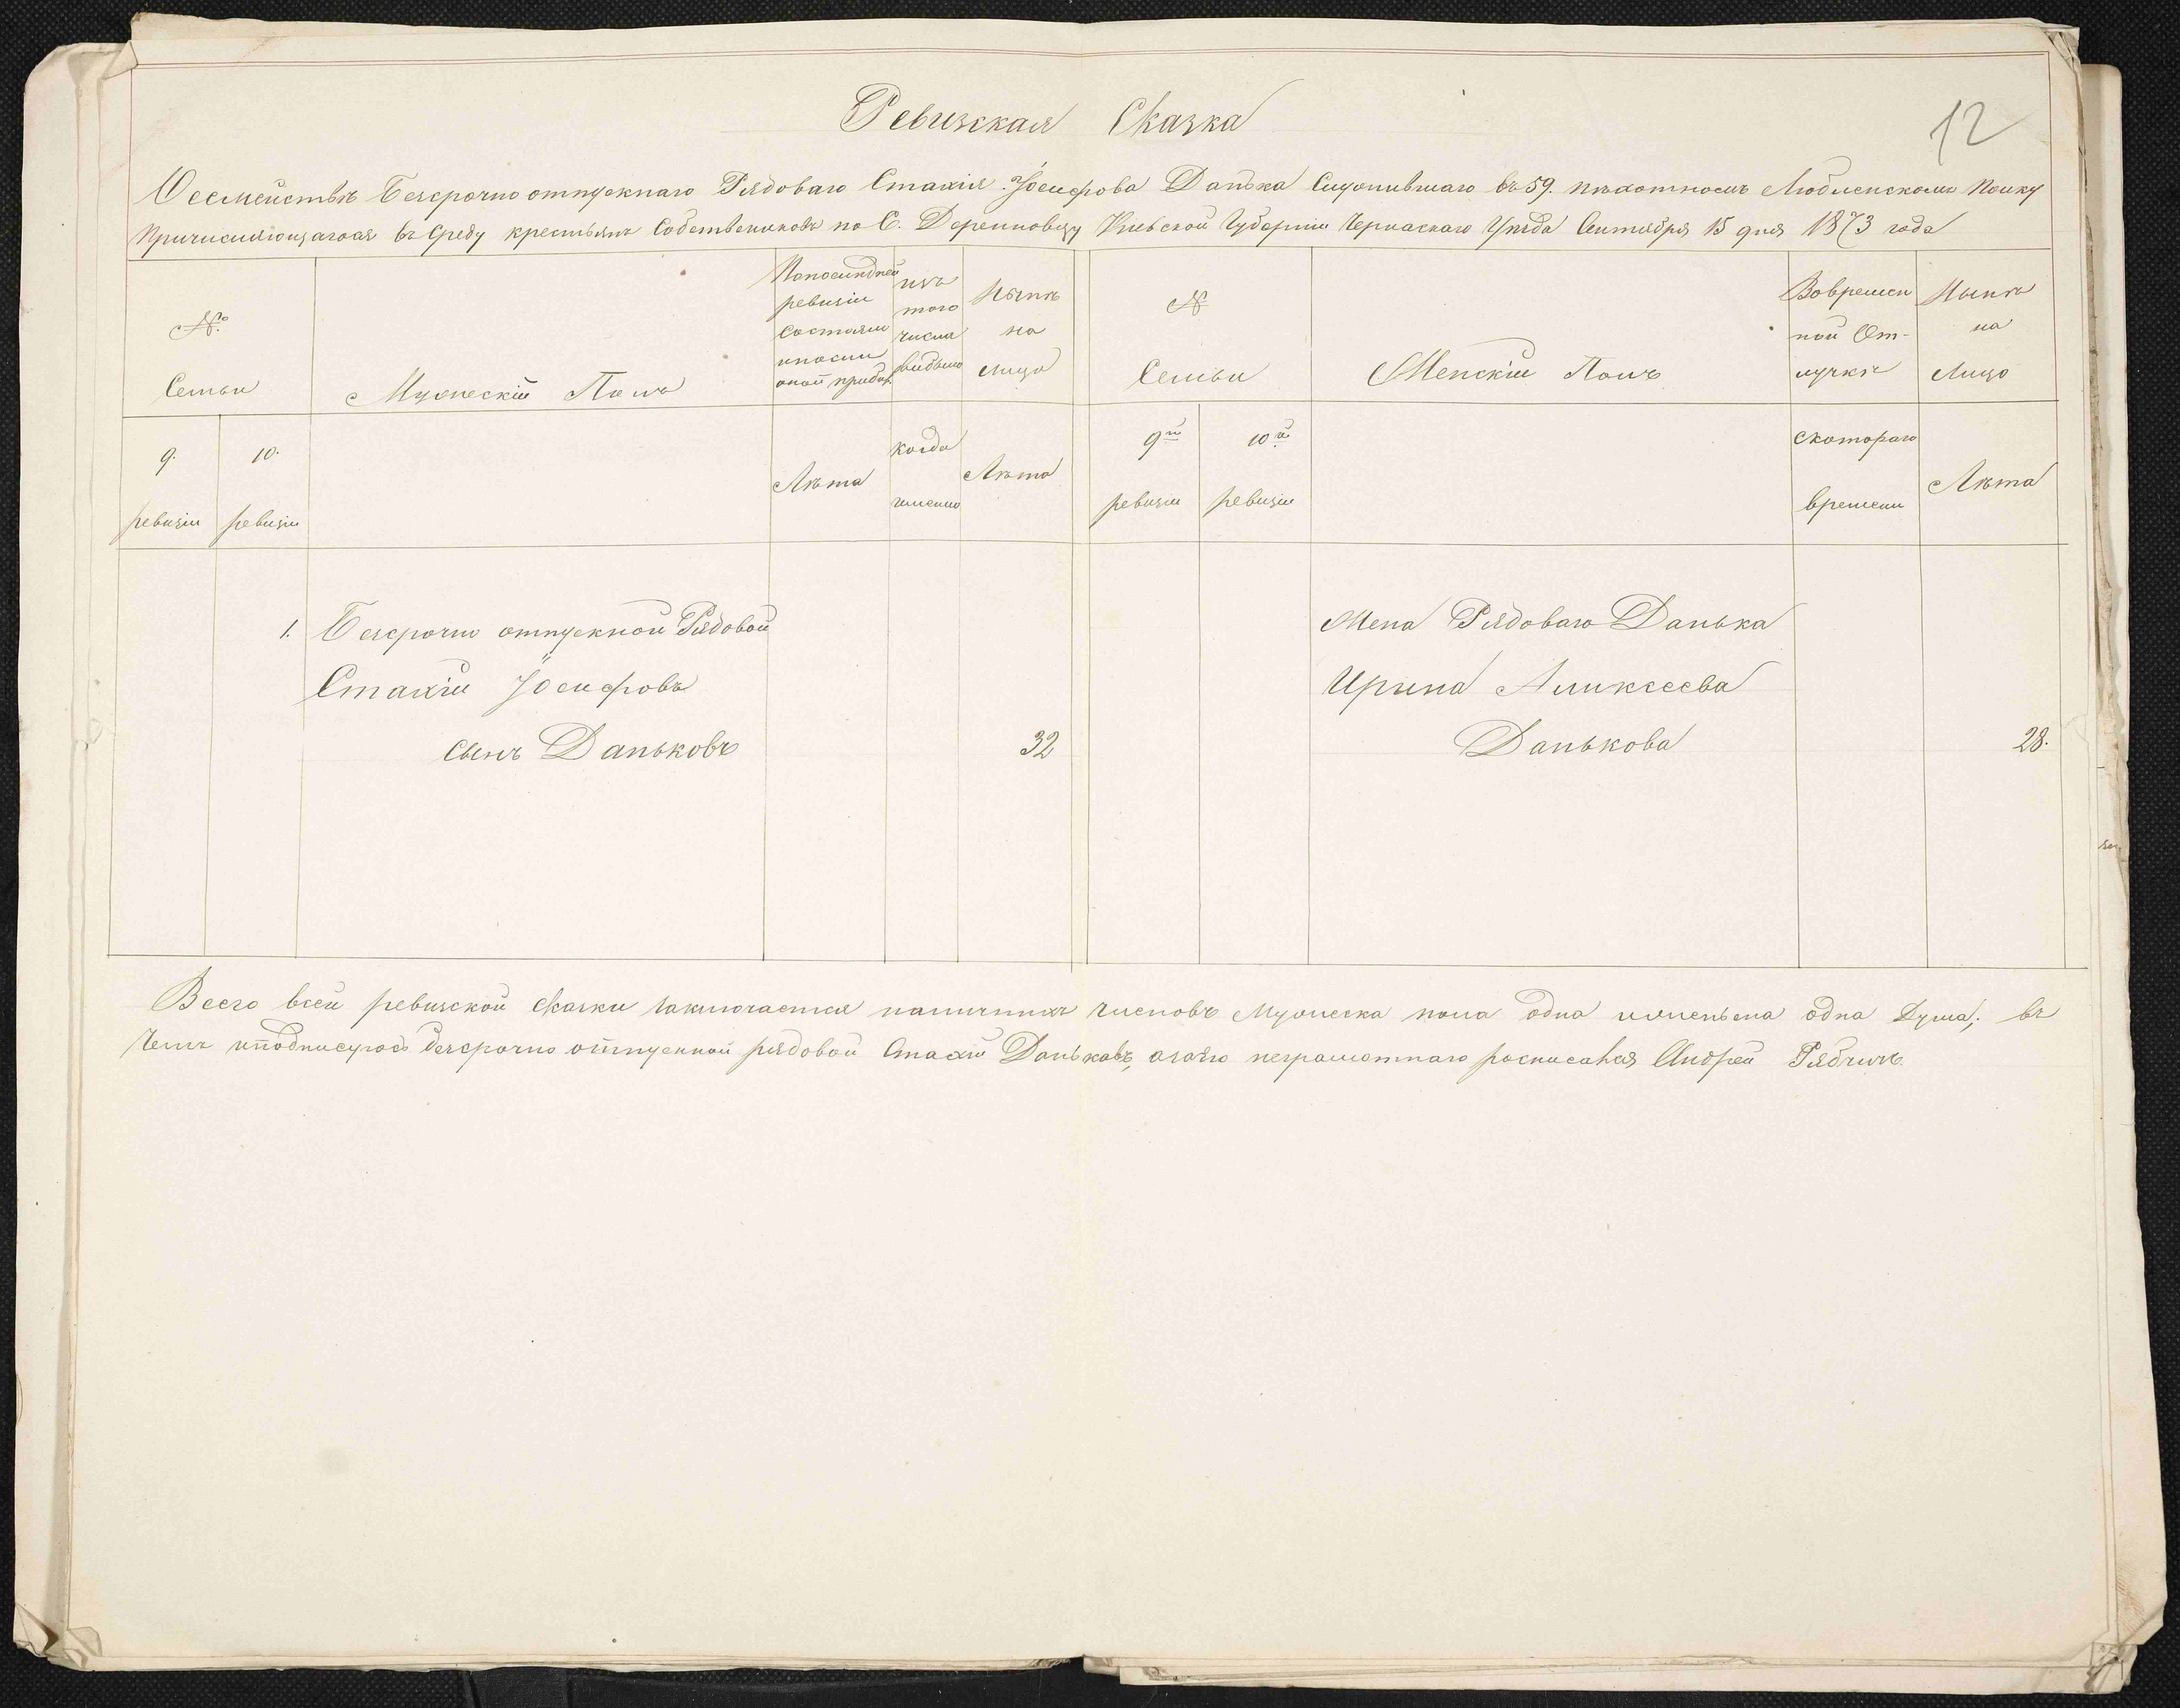 Ревизская Сказка
12
О семействѣ безсрочно отпускнаго Рядоваго Стахія Іосифова Данька Служившаго въ 59. пѣхотномъ Люблинскомъ Полку
Причисляющагося въ Среду крестьянъ Собственниковъ по С. Деренковцу Кіевской Губерніи Черкаскаго Уѣзда Сентября 15 дня 1873 года
№
Семьи
Мужескій Полъ
Попослѣдней
ревизіи
состояли
ипосли
оной прибыл
изъ
того
числа
выбыло
Нынѣ
на
лицо
№
Семьи
Женскій Полъ
Вовремен
ной От-
лучкѣ
Нынѣ
на
Лицо
9.
ревизіи
10.
ревизіи
Лѣта
когда
имянно
Лѣта
9й
ревизіи
10й
ревизіи
скотораго
времени
Лѣта
1. Безсрочно отпускной Рядовой
Стахій Іосифовъ
сынъ Даньковъ 32
Жена Рядоваго Данька
Ирина Аликсеева
Данькова 28.
Всего всей ревизской сказки заключается наличнихъ членовъ Мужеска пола одна иженьска одна Душа; въ
чемъ иподписуюсь безсрочно отпускной рядовой Стахій Даньковъ, азаего неграмотнаго росписался Андрей Рябчичъ.